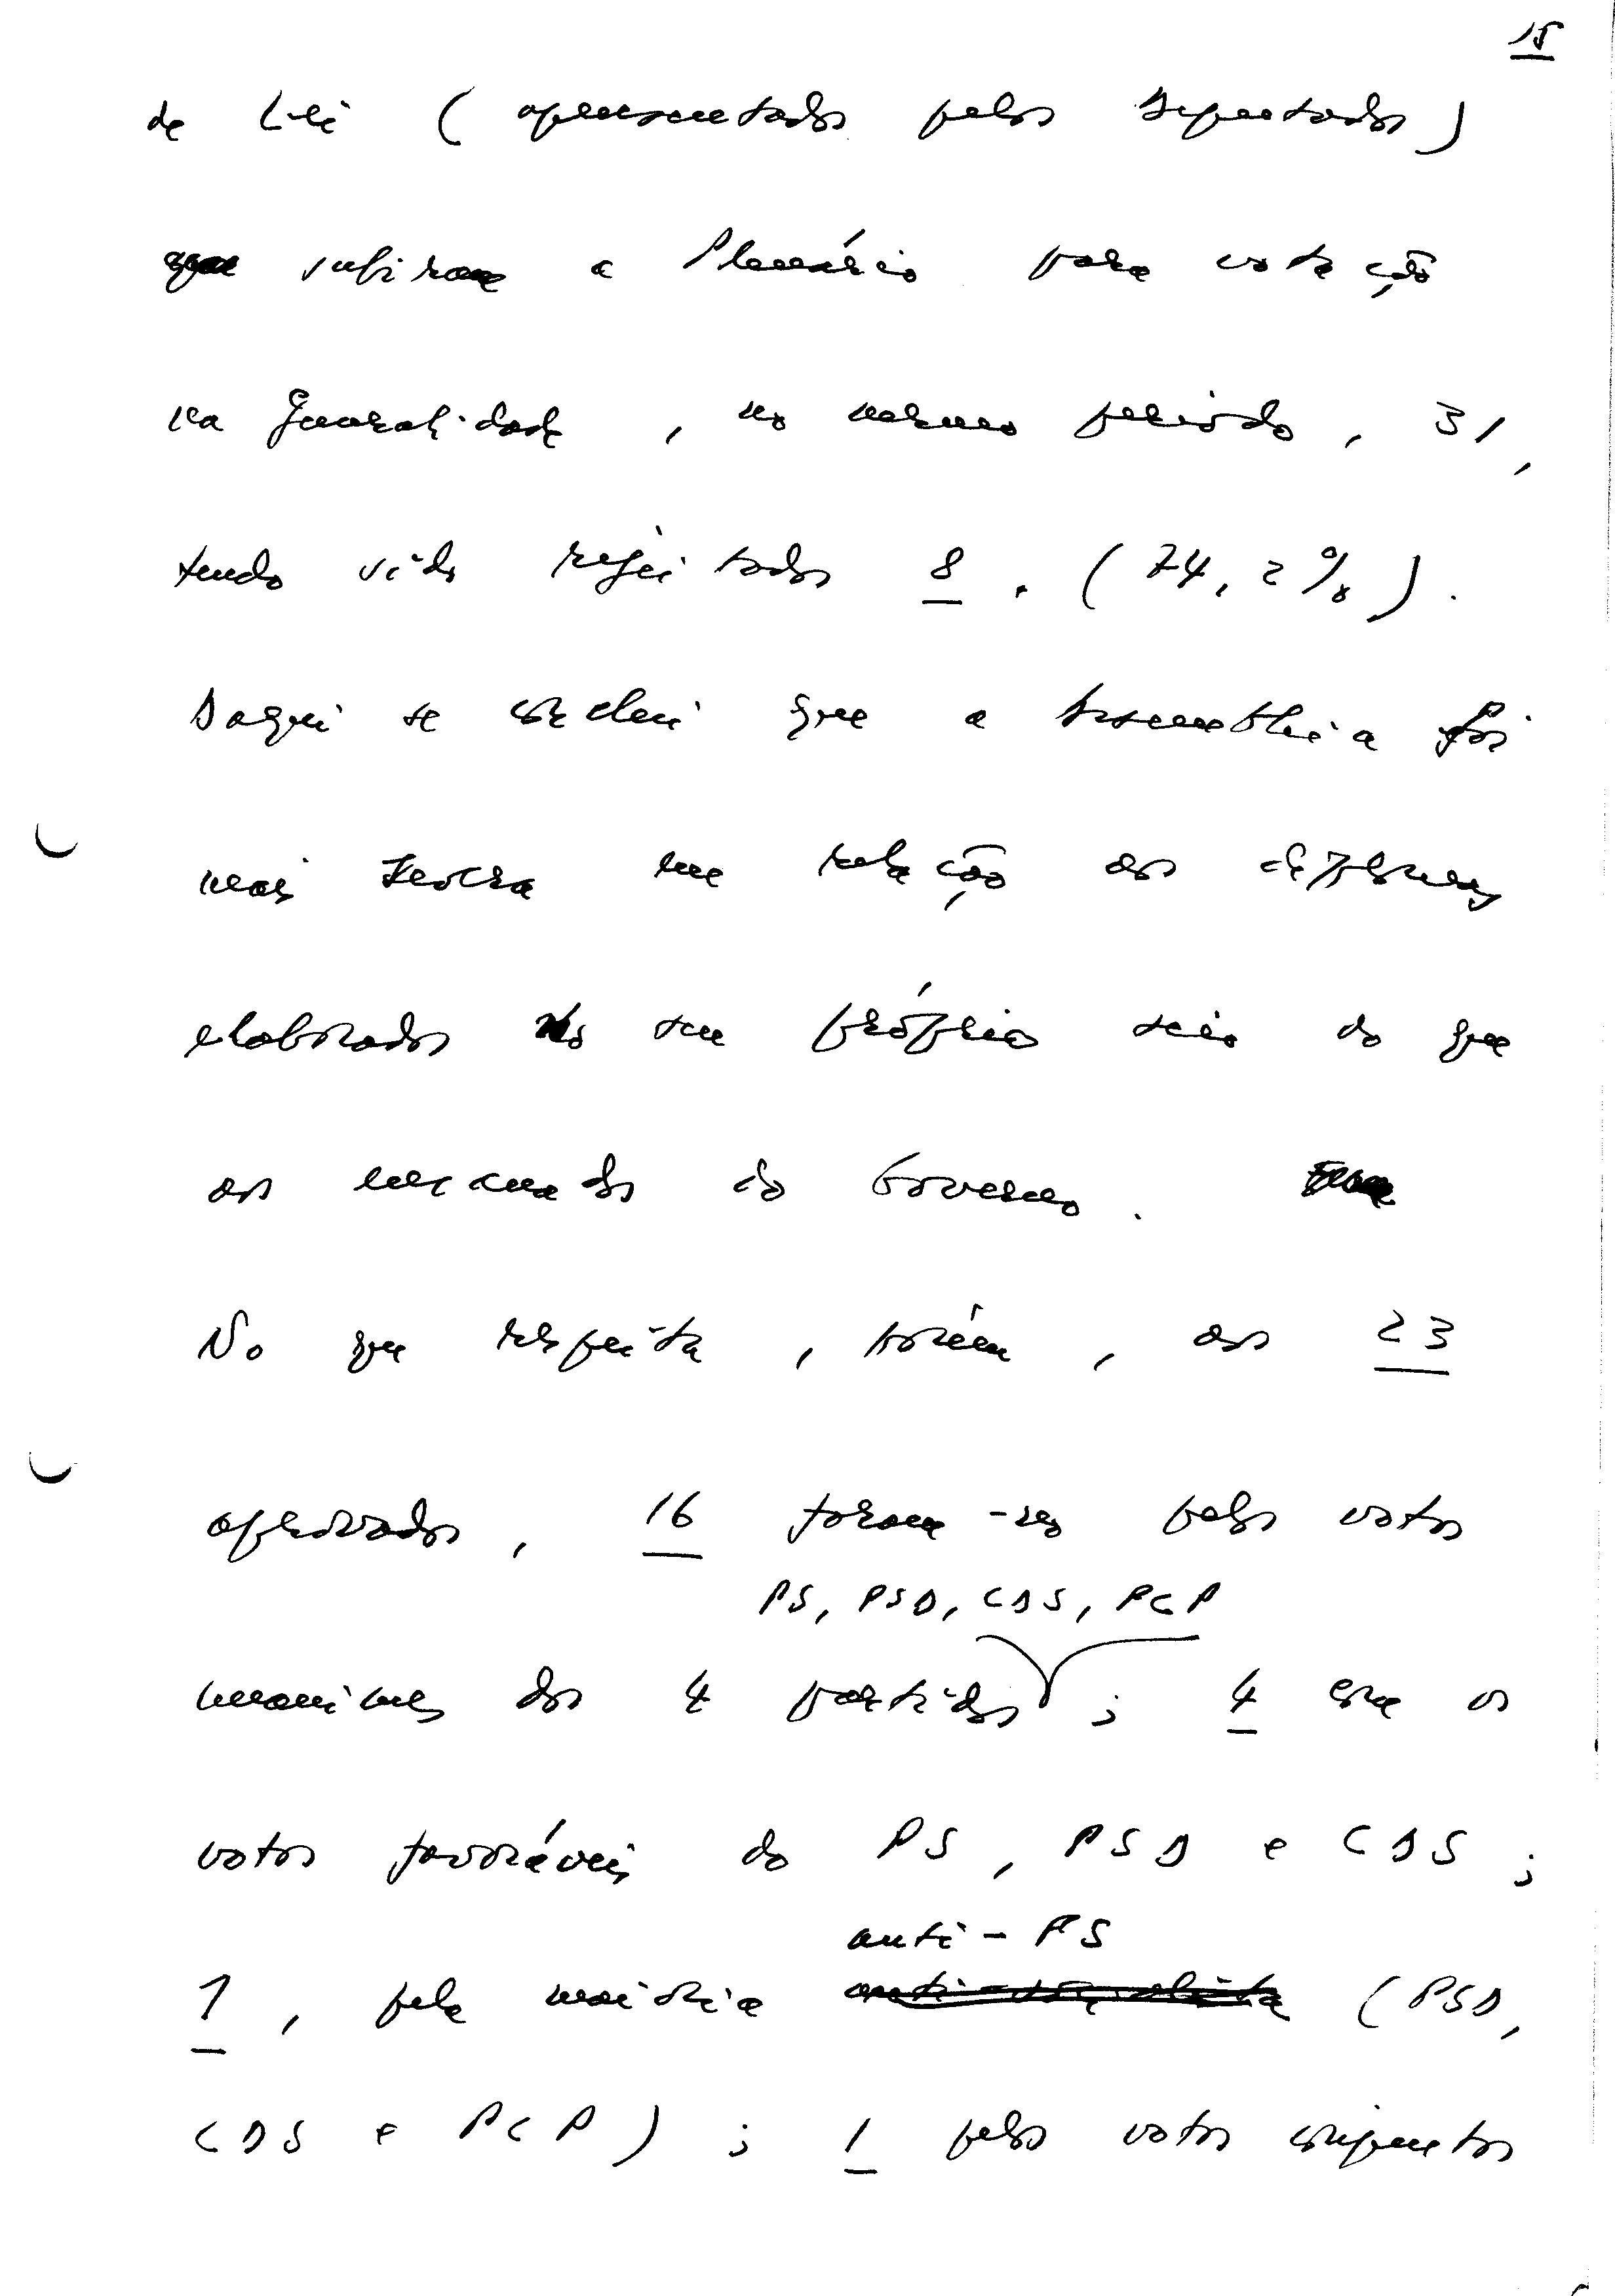 15
de Lei (apresentados pelos Deputados)
que subiram a Plenário para votação
na generalidade, no mesmo período, 31,
tendo sido rejeitados 8. (74,2%).
Daqui se conclui que a Assembleia foi
mais severa em relação aos diplomas
elaborados no seu próprio seio do que
aos emanados do Governo.
No que respeita, porém, aos 23
aprovados, 16 foram-no pelos votos
PS, PSD, CDS, PCP
unanimes dos 4 partidos; 4 com os
votos favoráveis do PS, PSD e CDS;
anti-PS
1, pela maioria anti-socialista (PSD,
CDS e PCP); 1 pelos votos conjuntos